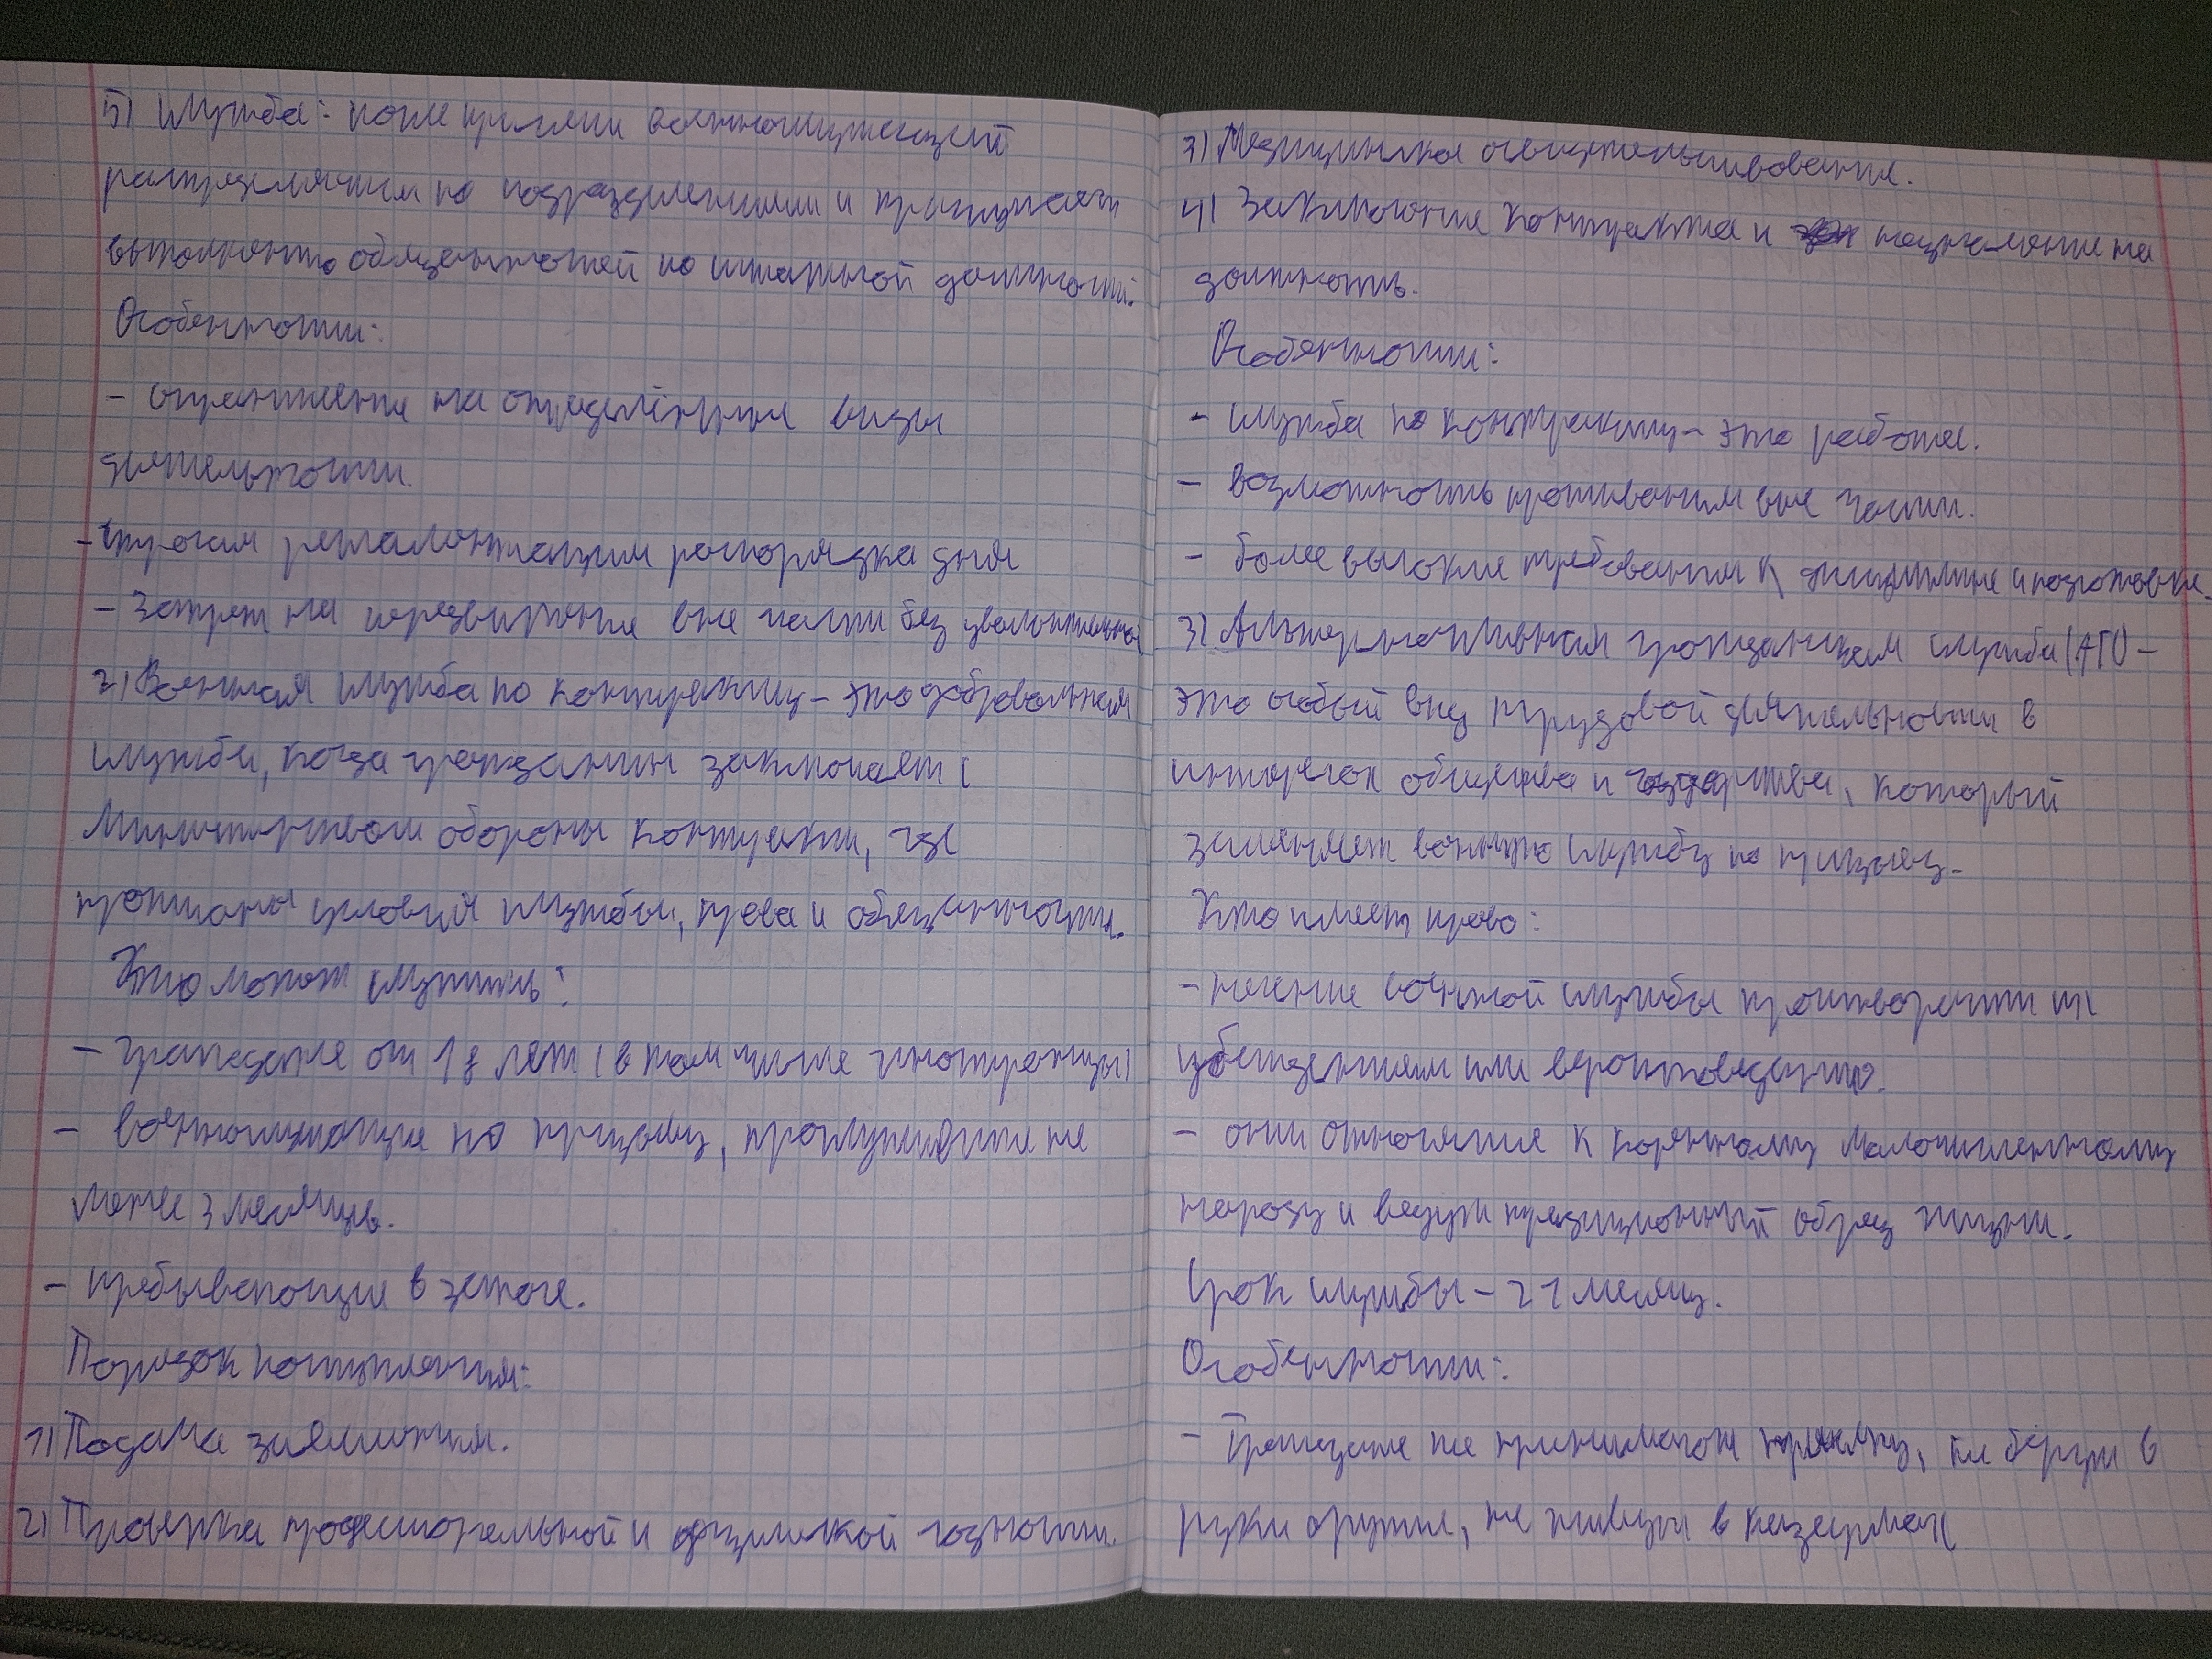 5) Служба: после присяги военнослужащий
распределяется по подразделениям и приступает
выполнению обязанностей по штатной должности.
Особенности:
- ограничение на определённые виды
деятельности.
- Строгая регламентация распорядка дня
- Запрет на передвижение вне части без увольнительной
2) Военная служба по контракту - это добровольная
служба, когда гражданин заключает с
Министерством обороны контракт, где
прописаны условия службы, права и обязанности.
Кто может служить:
- граждане от 18 лет (в том числе иностранцы)
- военнослужащие по призыву, прослужившие не
менее 3 месяцев.
- пребывающие в запасе.
Порядок поступления:
1) Подача заявления.
2) Проверка профессиональной и физической годности.
3) Медицинское освидетельствование.
4) Заключение контракта и назначение на
должность.
Особенности:
- служба по контракту - это работа.
- возможность проживания вне части.
- более высокие требования к дисциплине и подготовке.
3) Альтернативная гражданская служба (АГС) -
это особый вид трудовой деятельности в
интересах общества и государства, который
заменяет военную службу по призыву.
Кто имеет право:
- несение военной службы противоречит их
убеждениям или вероисповеданию.
- они относятся к коренному малочисленному
народу и ведут традиционный образ жизни.
Срок службы - 21 месяц.
Особенности:
- Граждане не принимают присягу, не берут в
руки оружие, не живут в казармах